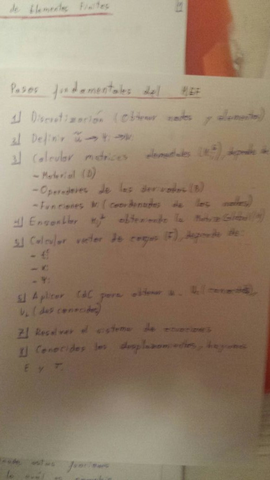 de Elementos Finitos
Pasos fundamentales del MEF
1) Discretización (Obtener nodos y elementos)
2) Definir ũ → φi
3) Calcular matrices elementales (Kije), depende de:
- Material (D)
- Operadores de las derivadas (B)
- Funciones (coordenadas de los nodos)
4) Ensamblar Kije obteniendo la Matriz Global (K)
5) Calcular vector de cargas (F), depende de:
6) Aplicar C.d.C para obtener u, (conocidos),
(desconocidos)
7) Resolver el sistema de ecuaciones
8) Conocidos los desplazamientos, hayamos
ε y σ.
estas funciones